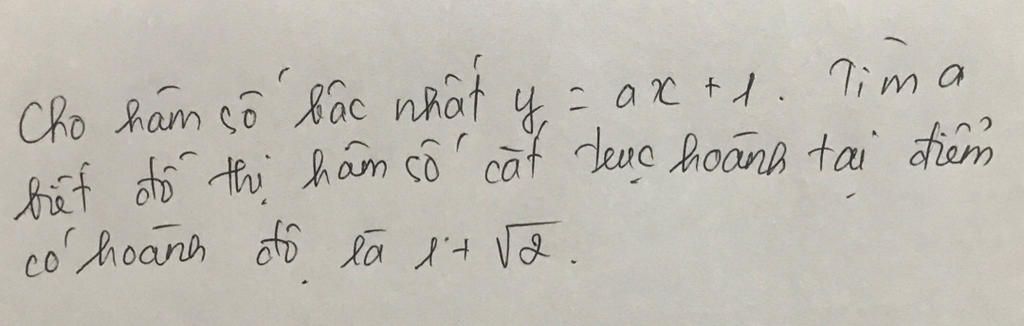 Cho hàm số bậc nhất y = ax + 1. Tìm a
biết đồ thị hàm số cắt trục hoành tại điểm
có hoành độ là 1 + √2.